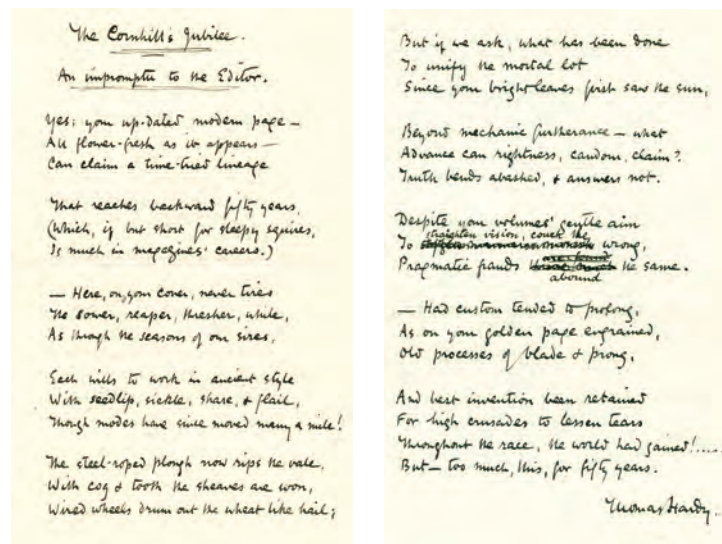 The Cornhill's Jubilee.
An impromptu to the Editor.
Yes: your up-dated modern page —
All flower-fresh as it appears —
Can claim a time-tried lineage
That reaches backward fifty years,
(Which, if but short for sleepy squires,
Is much in magazines' careers.)
— Here, on your cover, never tires
The sower, reaper, thresher, while,
As through the seasons of our sires,
Each wills to work in ancient style
With seedlip, sickle, share, & flail,
Though modes have since moved many a mile!
The steel-roped plough now rips the vale,
With cog & tooth the sheaves are won,
Wired wheels drum out the wheat like hail;
But if we ask, what has been done
To unify the mortal lot
Since your bright leaves first saw the sun,
Beyond mechanic furtherance — what
Advance can rightness, candour, claim?
Truth bends abashed, & answers not.
Despite your volumes' gentle aim
straighten vision, couch the
To wrong,
are found
Pragmatic frauds the same.
abound
— Had custom tended to prolong,
As on your golden page engrained,
Old processes of blade & prong,
And best invention been retained
For high crusades to lessen tears
Throughout the race, the world had gained!....
But — too much, this, for fifty years.
Thomas Hardy.